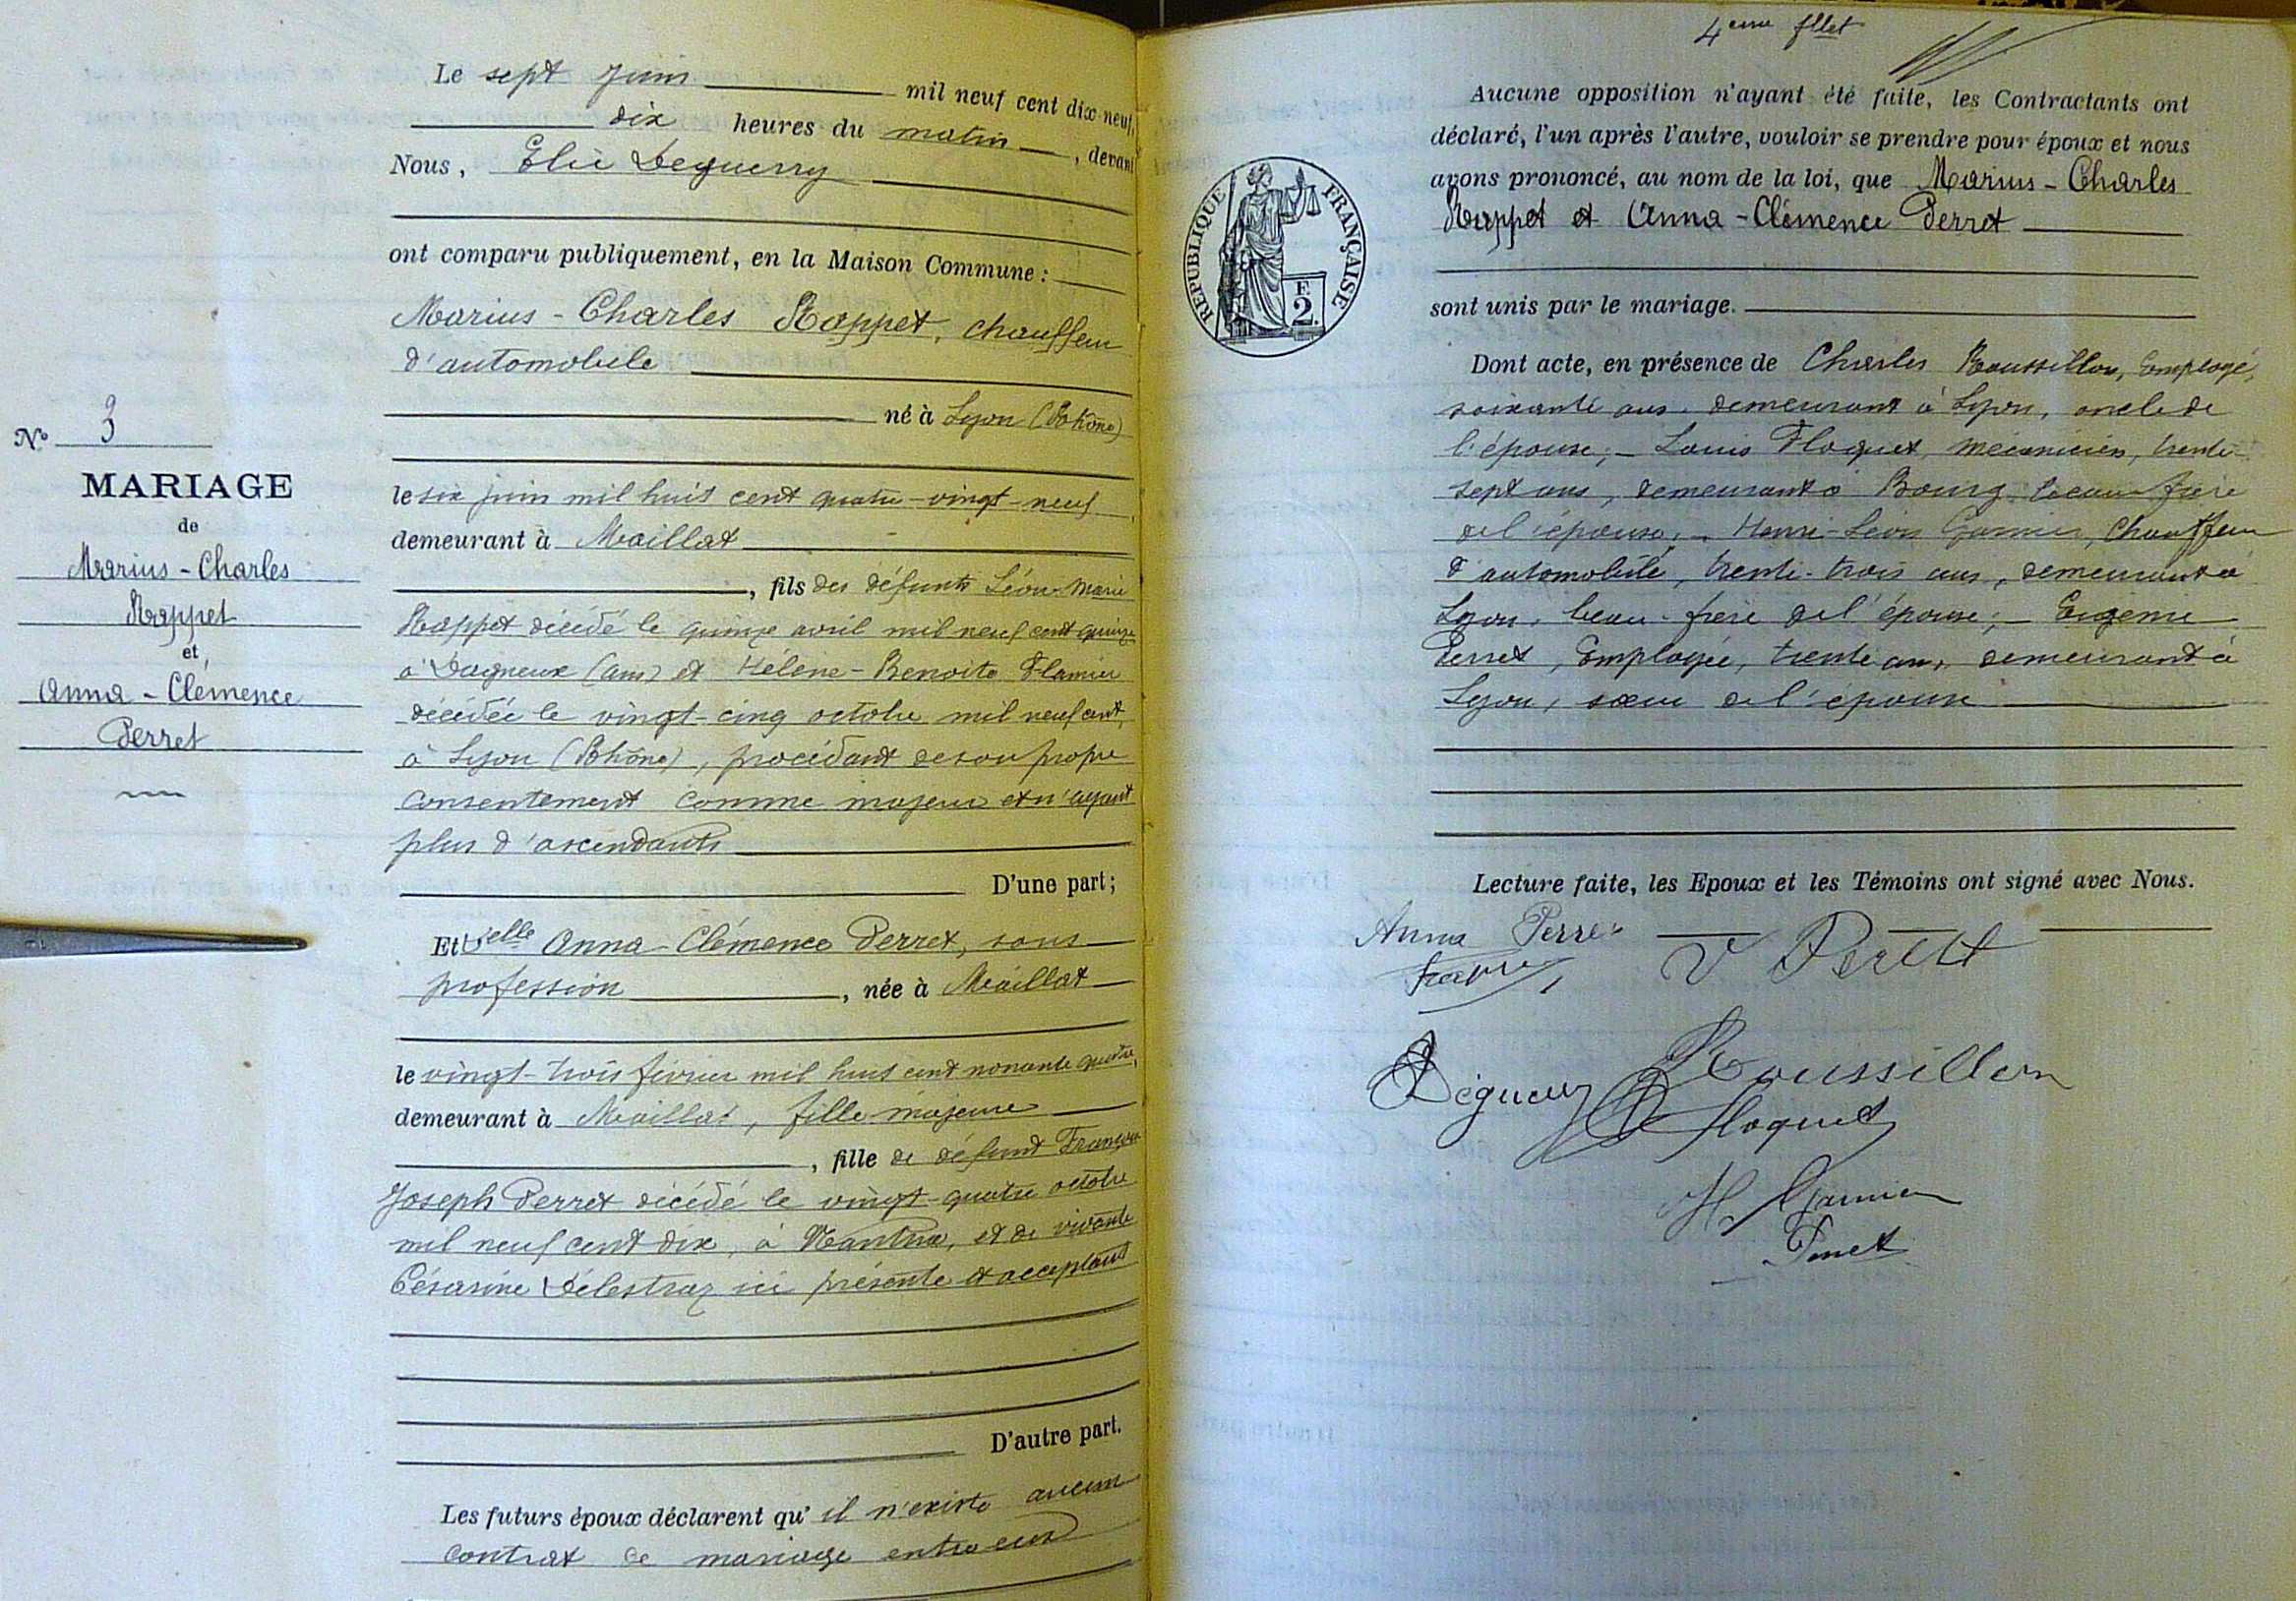 Le sept Juin mil neuf cent dix-neuf,
dix heures du matin, devant
Nous, Elie Deguerry
ont comparu publiquement, en la Maison Commune :
Marius-Charles Rappet, chauffeur
d'automobile
né à Lyon (Rhône)
le six juin mil huit cent quatre-vingt-neuf
demeurant à Maillat
, fils des défunts Léon-Marie
Rappet décédé le quinze avril mil neuf cent quinze
à Dagneux (Ain) et Hélène-Benoite Flamier
décédée le vingt-cinq octobre mil neuf cent,
à Lyon (Rhône), procédant de son propre
consentement comme majeur et n'ayant
plus d'ascendants
D'une part;
Et Delle Anna-Clémence Perret, sans
profession, née à Maillat
le vingt-trois février mil huit cent nonante quatre,
demeurant à Maillat, fille majeure
, fille de défunt François
Joseph Perret décédé le vingt-quatre octobre
mil neuf cent dix, à Nantua, et de vivante
Césarine Délestraz ici présente et acceptant
D'autre part.
Les futurs époux déclarent qu'il n'existe aucun
contrat de mariage entre eux
No 3
MARIAGE
de
Marius-Charles
Rappet
et
Anna-Clémence
Perret
4eme fllet
RÉPUBLIQUE FRANÇAISE
F.
2.
Aucune opposition n'ayant été faite, les Contractants ont
déclaré, l'un après l'autre, vouloir se prendre pour époux et nous
avons prononcé, au nom de la loi, que Marius-Charles
Rappet et Anna-Clémence Perret
sont unis par le mariage.
Dont acte, en présence de Charles Roussillon, Employé,
soixante ans, demeurant à Lyon, oncle de
l'épouse; - Louis Floquet, mécanicien, trente-
sept ans, demeurant à Bourg, beau-frère
de l'épouse; - Henri-Léon Garnier, Chauffeur
d'automobile, trente-trois ans, demeurant à
Lyon, beau-frère de l'épouse; - Eugénie
Perret, Employée, trente ans, demeurant à
Lyon, sœur de l'épouse
Lecture faite, les Epoux et les Témoins ont signé avec Nous.
Anna Perret
V Perret
Roussillon
Floquet
H Garnier
Perret